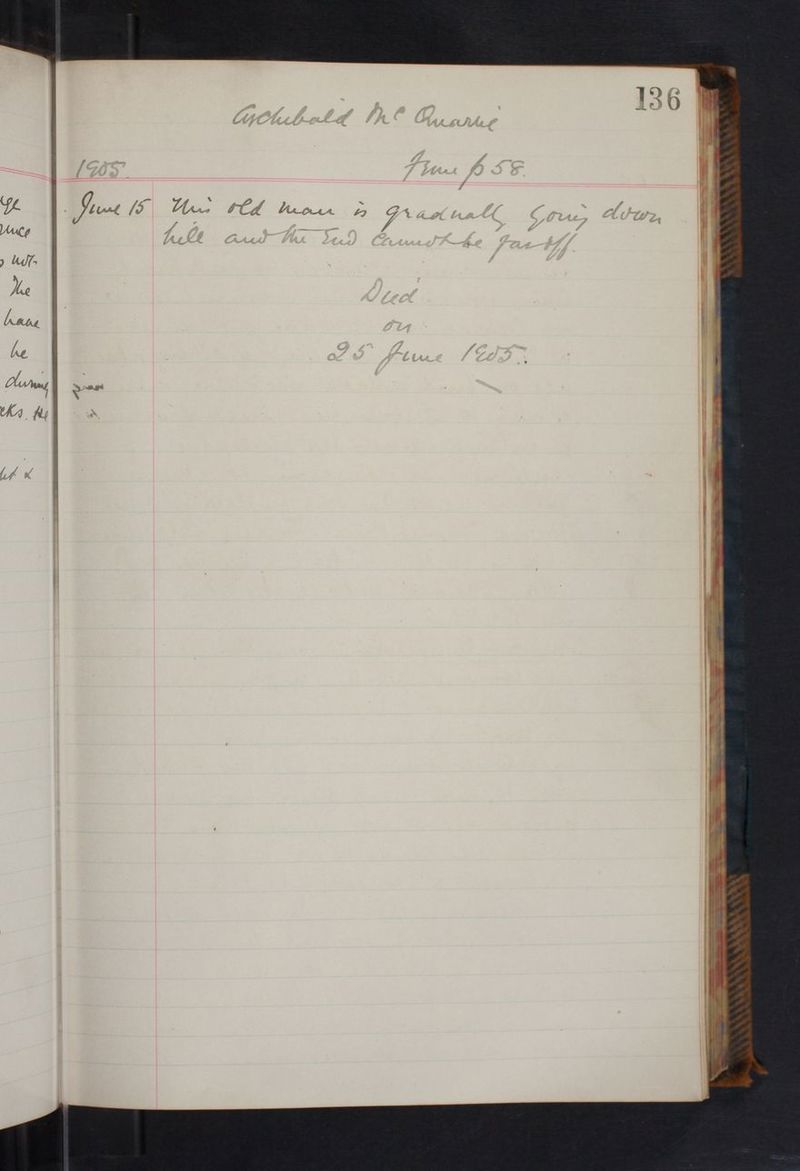 136
Archibald Mc Quarrie
1905. From p 58.
June 15 This old man is gradually going down
hill and the End cannot be far off.
Died
on
25 June 1905.
not
The
have
he
during
eks. He